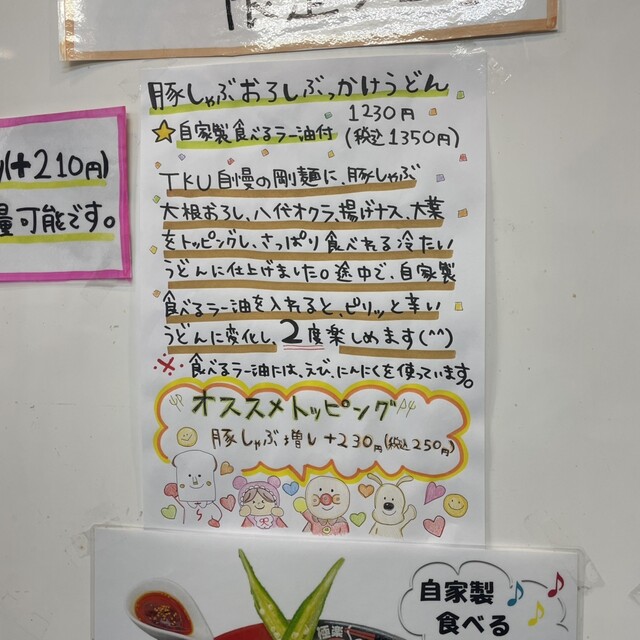 豚しゃぶおろしぶっかけうどん
1230円
★自家製食べるラー油付
(税込1350円)
TKU自慢の剛麺に、豚しゃぶ
大根おろし、八代オクラ、揚げナス、大葉
をトッピングし、さっぱり食べれる冷たい
うどんに仕上げました。途中で、自家製
食べるラー油を入れると、ピリッと辛い
うどんに変化し、2度楽しめます(^^)
※・食べるラー油には、えび、にんにくを使っています。
オススメトッピング
豚しゃぶ増し+230円(税込250円)
(+210円)
量可能です。
自家製
食べる